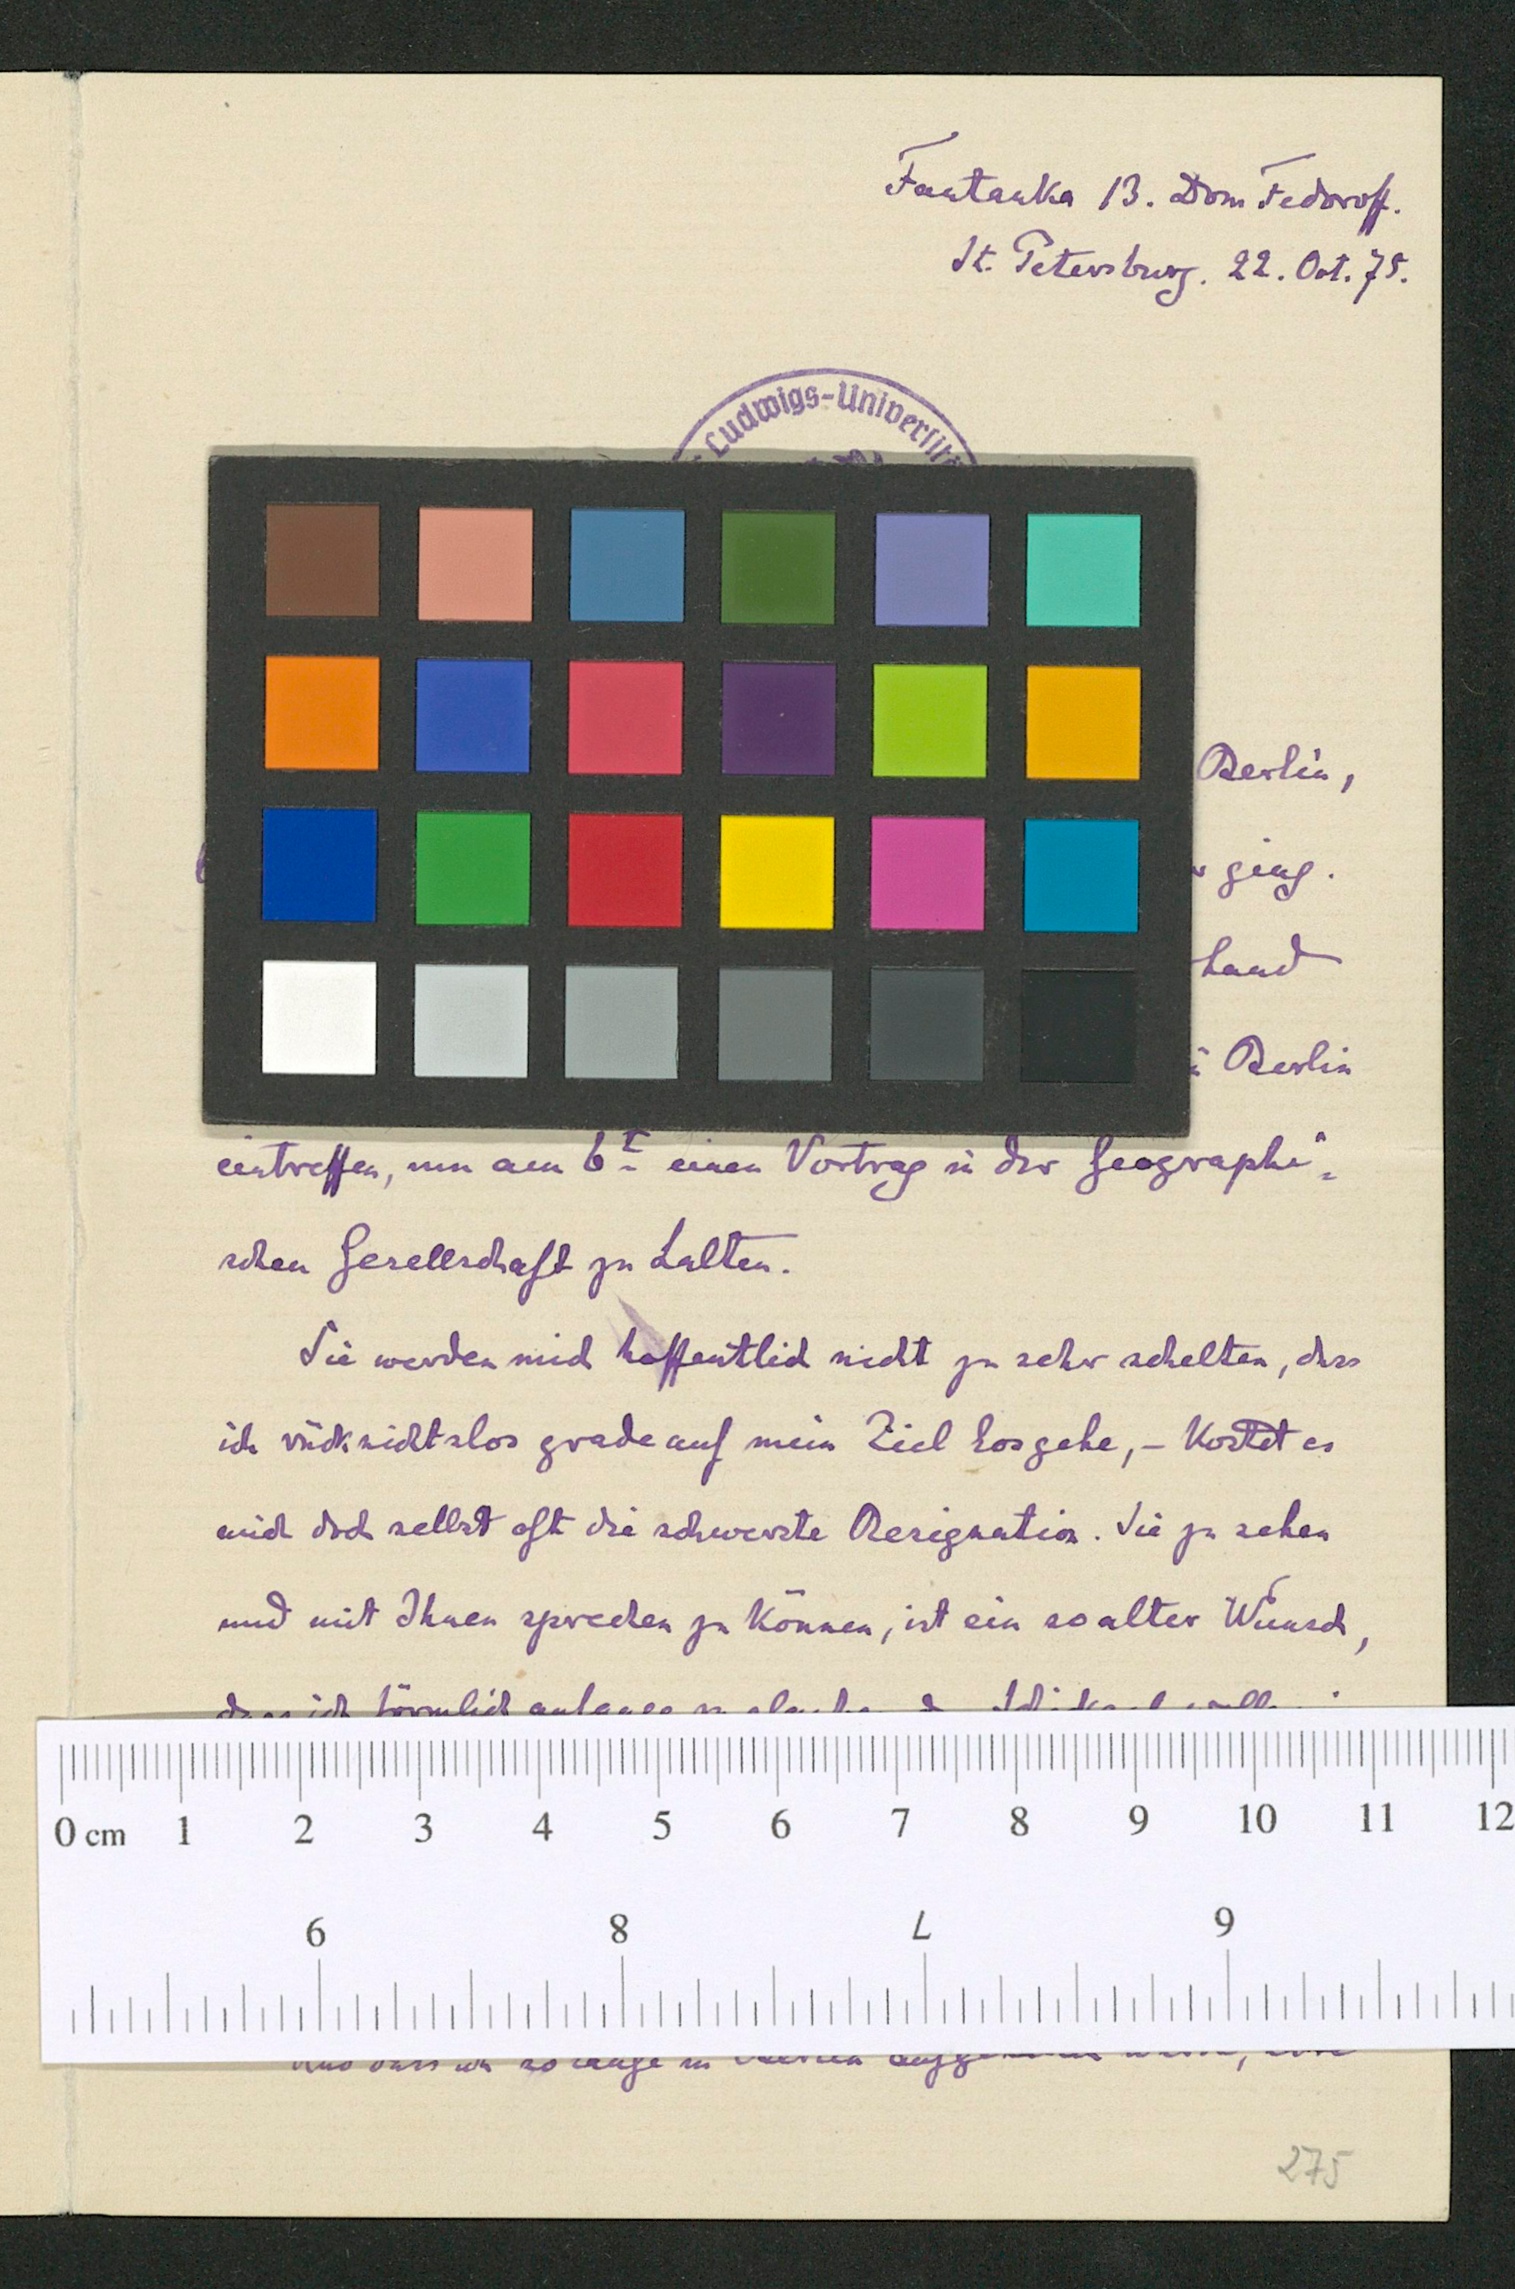 Fontanka 13. Dom Fedoroff.
St. Petersburg. 22. Oct. 75.
Ludwigs-Universitä
Berlin,
ging.
hand
Berlin
eintreffen, um am 6t einen Vortrag in der Geographi-
schen Gesellschaft zu halten.
Sie werden mich hoffentlich nicht zu sehr schelten, dass
ich rücksichtslos grade auf mein Ziel losgehe, – kostet es
mich doch selbst oft die schwerste Resignation. Sie zu sehen
und mit Ihnen sprechen zu können, ist ein so alter Wunsch,
dass ich förmlich anfange zu glauben
0 cm 1 2 3 4 5 6 7 8 9 10 11 12
9 8 7 6
und dass ich so lange in Berlin
275